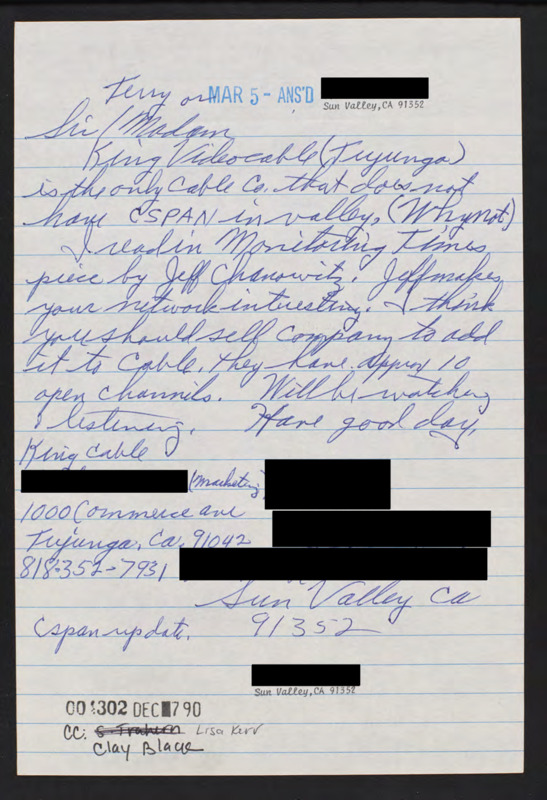 Terry or MAR 5 - ANS'D
Sun Valley, CA 91352
Sir/Madam
King Videocable (Tujunga)
is the only Cable Co. that does not
have CSPAN in valley, (Why not)
I read in Monitoring Times
piece by Jeff Chanowitz. Jeff makes
your network interesting. I think
you should sell company to add
it to Cable. They have approx 10
open channels. Will be watching
listening. Have good day,
King Cable
(Marketing)
1000 Commerce ave
Tujunga, Ca, 91042
818-352-7931
Sun Valley Ca
91352
Cspan update.
Sun Valley, CA 91352
001302 DEC 17 90
CC: S. Trahern Lisa Kerr
Clay Black